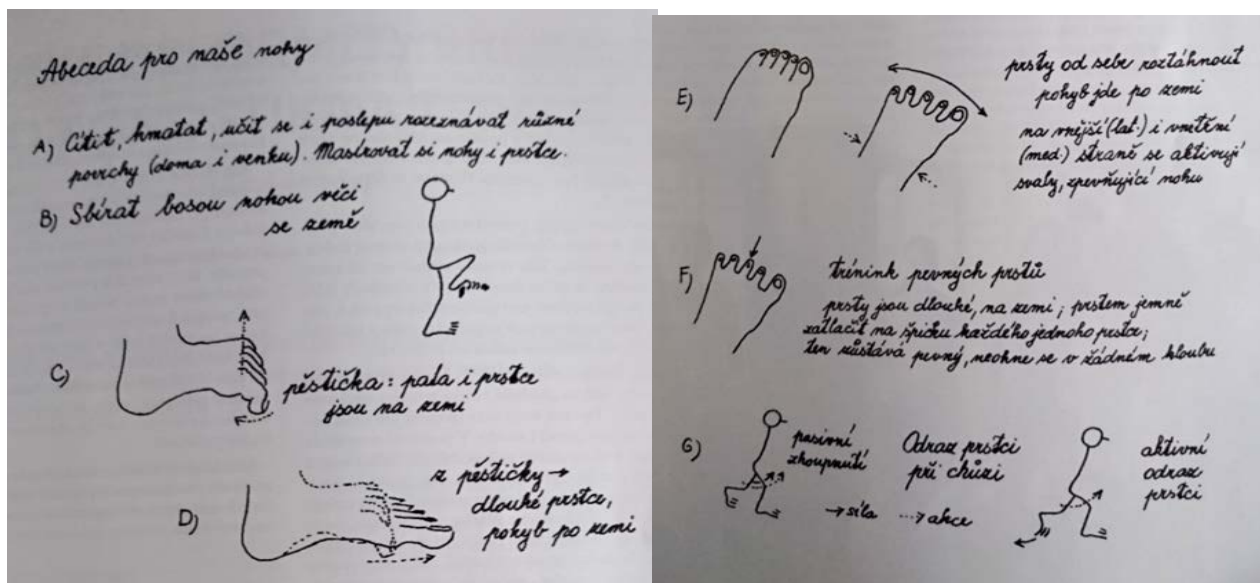 Abeceda pro naše nohy
A) Cítit, hmatat, učit se i poslepu rozeznávat různé
povrchy (doma i venku). Masírovat si nohy i prstce.
B) Sbírat bosou nohou věci
se země
A
C)
pěstička: pata i prstce
jsou na zemi
D)
z pěstičky →
dlouhé prstce,
pohyb po zemi
E)
prsty od sebe roztáhnout
pohyb jde po zemi
na vnější (lat.) i vnitřní
(med.) straně se aktivují
svaly, zpevňující nohu
F)
trénink pevných prstů
prsty jsou dlouhé, na zemi; prstem jemně
zatlačit na špičku každého jednoho prstce;
ten zůstává pevný, neohne se v žádném kloubu
G)
pasivní
zhoupnutí
Odraz prstci
při chůzi
→ síla ⇢ akce
aktivní
odraz
prstci